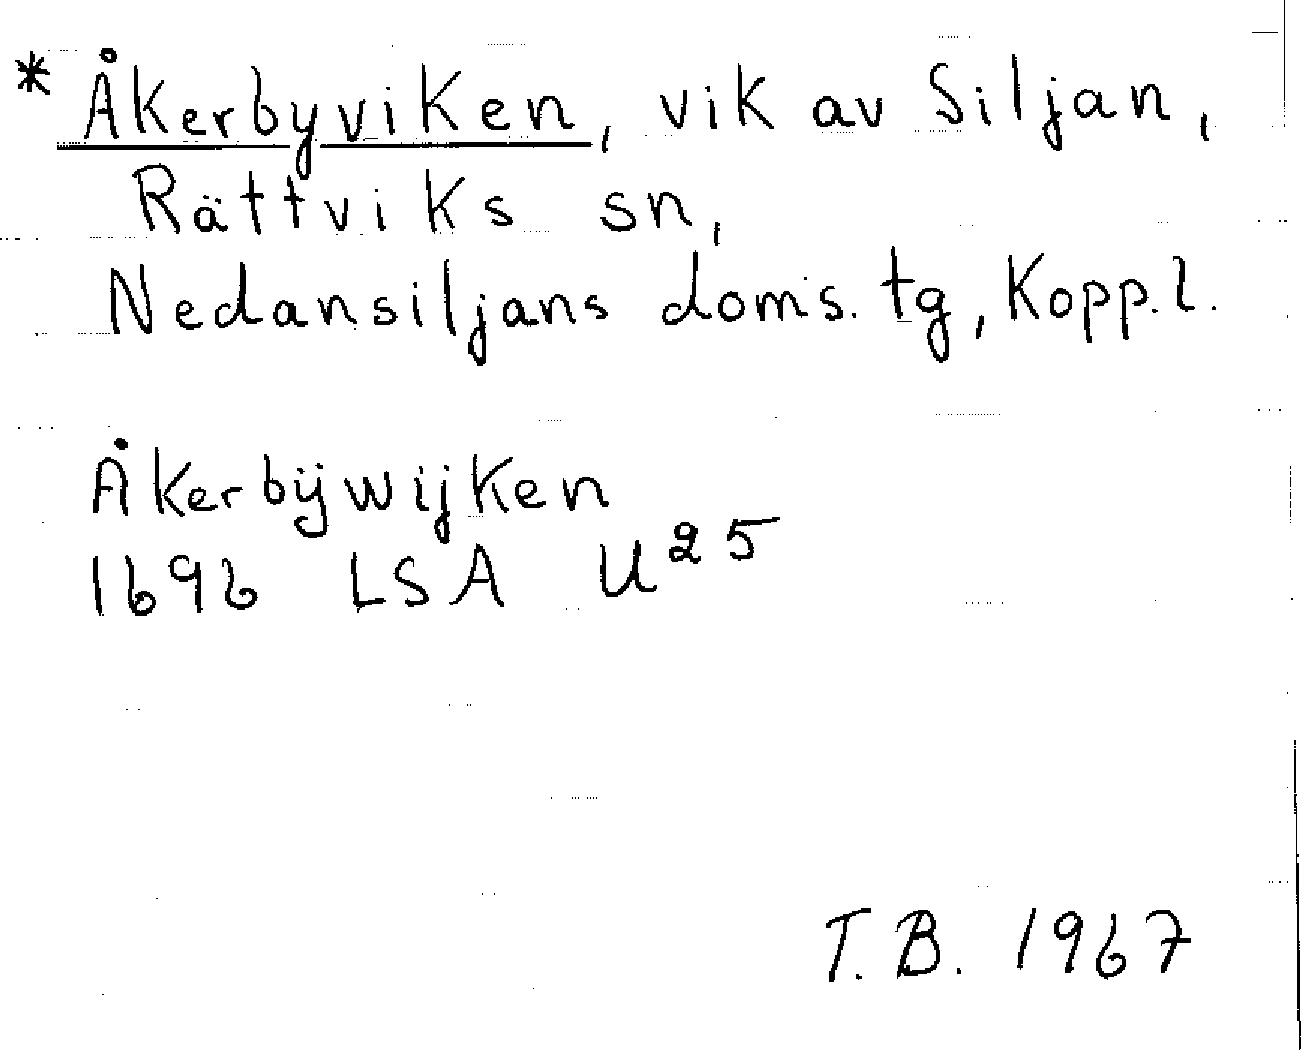 * Åkerbyviken, vik av Siljan,
Rättviks sn,
Nedansiljans doms. tg, Kopp. l.
Åkerbÿwijken
1696 LSA U 25
T.B. 1967